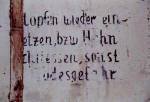 topfen wieder ein-
etzen, bzw. H hn
chliessen, sonst
odesgef hr